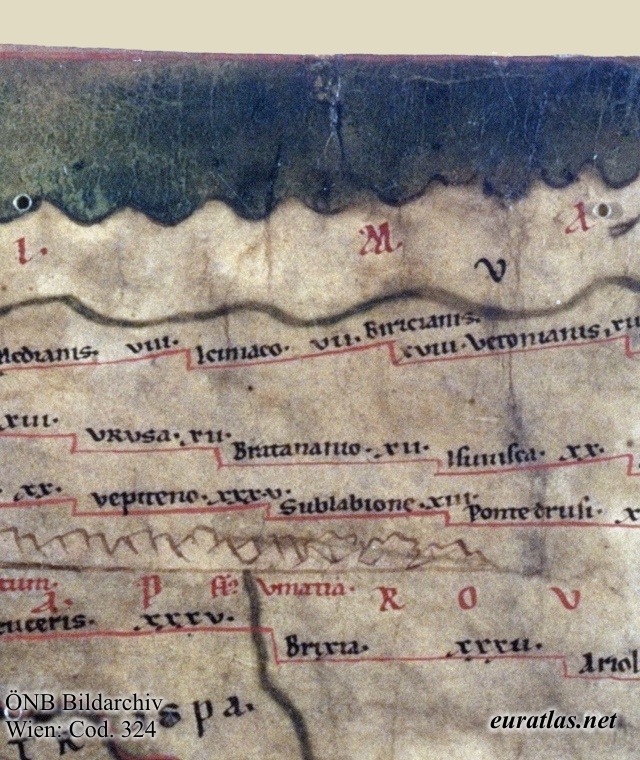 I. M A
V
Medianis. VIII. Iciniaco. VII. Biricianis. XVIII. Vetonianis.
XIII. URUSA. XII. Bratananio. XII. Isunisca. XX.
XX. Vepiteno. XXXV. Sublabione. XIII. Pontedrusi. X
P R O V
XXXV. Brixia. XXXII. Ariol
spa.
ÖNB Bildarchiv
Wien: Cod. 324
euratlas.net